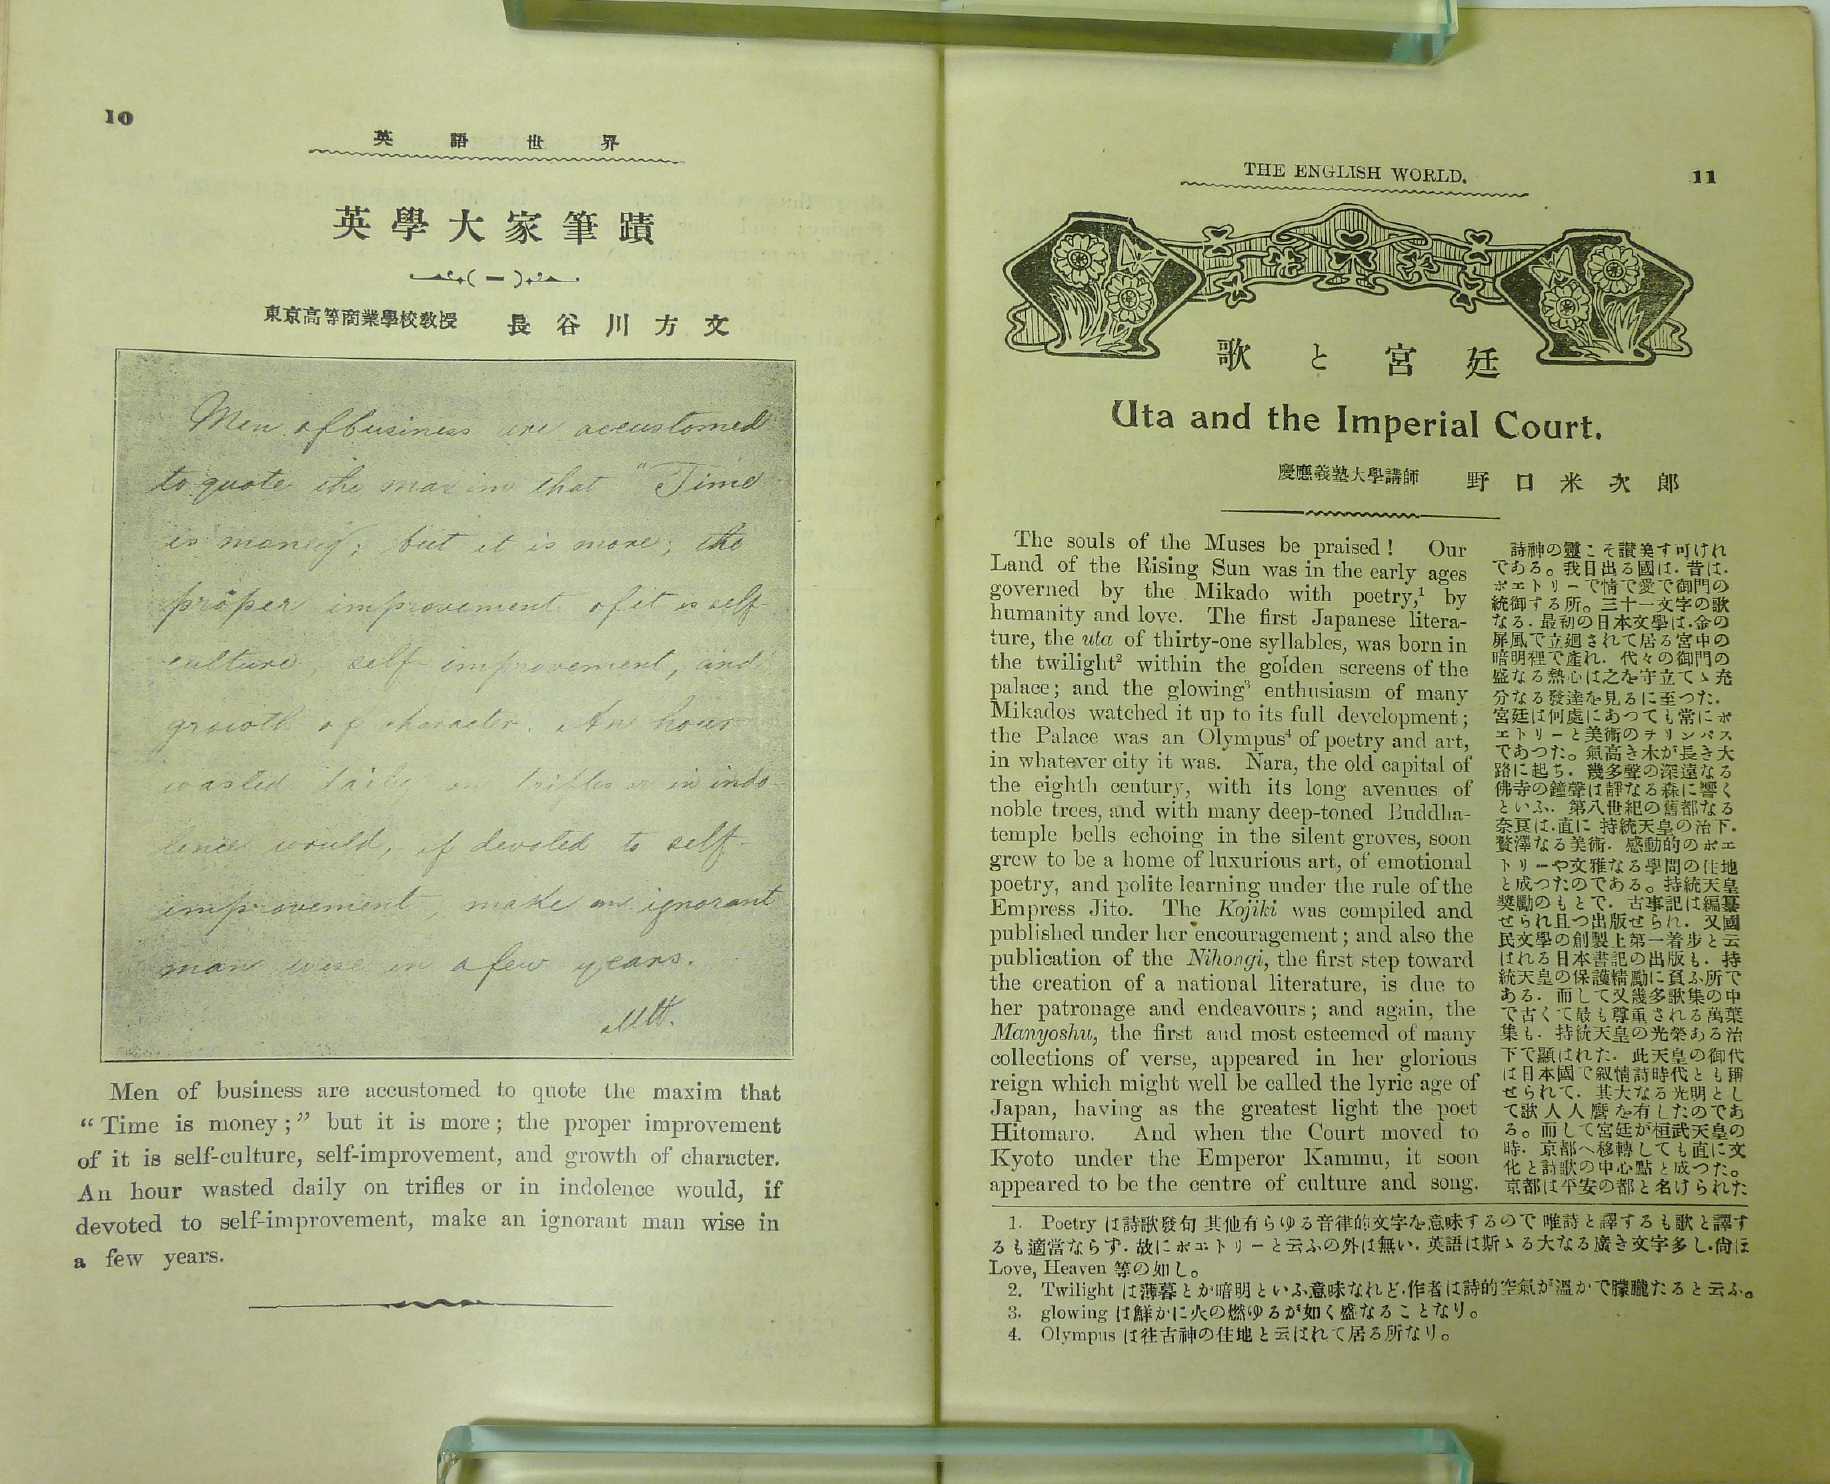 10
英語世界
英學大家筆蹟
(一)
東京高等商業學校敎授 長谷川方文
Men of business are accustomed
to quote the maxim that "Time
is money; but it is more; the
proper improvement of it is self-
culture, self-improvement, and
growth of character. An hour
wasted daily on trifles or in indo-
lence would, if devoted to self-
improvement, make an ignorant
man wise in a few years.
Men of business are accustomed to quote the maxim that
“Time is money;” but it is more; the proper improvement
of it is self-culture, self-improvement, and growth of character.
An hour wasted daily on trifles or in indolence would, if
devoted to self-improvement, make an ignorant man wise in
a few years.
THE ENGLISH WORLD.
11
歌と宮廷
Uta and the Imperial Court.
慶應義塾大學講師 野口米次郎
The souls of the Muses be praised! Our
Land of the Rising Sun was in the early ages
governed by the Mikado with poetry,¹ by
humanity and love. The first Japanese litera-
ture, the uta of thirty-one syllables, was born in
the twilight² within the golden screens of the
palace; and the glowing³ enthusiasm of many
Mikados watched it up to its full development;
the Palace was an Olympus⁴ of poetry and art,
in whatever city it was. Nara, the old capital of
the eighth century, with its long avenues of
noble trees, and with many deep-toned Buddha-
temple bells echoing in the silent groves, soon
grew to be a home of luxurious art, of emotional
poetry, and polite learning under the rule of the
Empress Jito. The Kojiki was compiled and
published under her encouragement; and also the
publication of the Nihongi, the first step toward
the creation of a national literature, is due to
her patronage and endeavours; and again, the
Manyoshu, the first and most esteemed of many
collections of verse, appeared in her glorious
reign which might well be called the lyric age of
Japan, having as the greatest light the poet
Hitomaro. And when the Court moved to
Kyoto under the Emperor Kammu, it soon
appeared to be the centre of culture and song.
詩神の靈こそ讃美す可けれ
である。我日出る國は．昔は．
ポエトリーで情で愛で御門の
統御する所。三十一文字の歌
なる．最初の日本文學は．金の
屏風で立廻されて居る宮中の
暗明裡で產れ．代々の御門の
盛なる熱心は之を守立てゝ充
分なる發達を見るに至つた．
宮廷は何處にあつても常にポ
エトリーと美術のオリンパス
であつた。氣高き木が長き大
路に起ち．幾多聲の深遠なる
佛寺の鐘聲は靜なる森に響く
といふ．第八世紀の舊都なる
奈良は．直に 持統天皇の治下．
贅澤なる美術．感動的のポエ
トリーや文雅なる學問の住地
と成つたのである。持統天皇
奬勵のもとで．古事記は編纂
せられ且つ出版せられ．又國
民文學の創製上第一着步と云
はれる日本書記の出版も．持
統天皇の保護精勵に負ふ所で
ある．而して又幾多歌集の中
で古くて最も尊重される萬葉
集も．持統天皇の光榮ある治
下で顯はれた．此天皇の御代
は日本國で叙情詩時代とも稱
せられて．其大なる光明とし
て歌人人麿を有したのであ
る。而して宮廷が桓武天皇の
時．京都へ移轉しても直に文
化と詩歌の中心點と成つた。
京都は平安の都と名けられた
1. Poetry は詩歌發句 其他有らゆる音律的文字を意味するので 唯詩と譯するも歌と譯す
るも適當ならず．故にポエトリーと云ふの外は無い．英語は斯ゝる大なる廣き文字多し．尙ほ
Love, Heaven 等の如し。
2. Twilight は薄暮とか暗明といふ意味なれど．作者は詩的空氣が溫かで朦朧たると云ふ。
3. glowing は鮮かに火の燃ゆるが如く盛なることなり。
4. Olympus は往古神の住地と云はれて居る所なり。